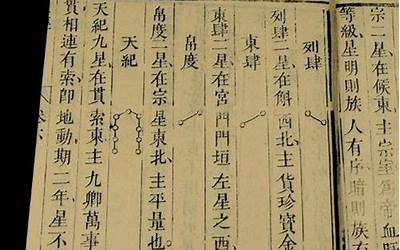 宗二星在候東主宗室爲帝血脈
等級星明則族人有序暗則族有
列肆
列肆二星在斛西北主貨珍寶金
東肆
東肆二星在宮門門垣左星之西
帛度
帛度二星在宗星東北主平量也
天紀
天紀九星在貫索東主九卿萬事
貫相連有索即地動期二年星不